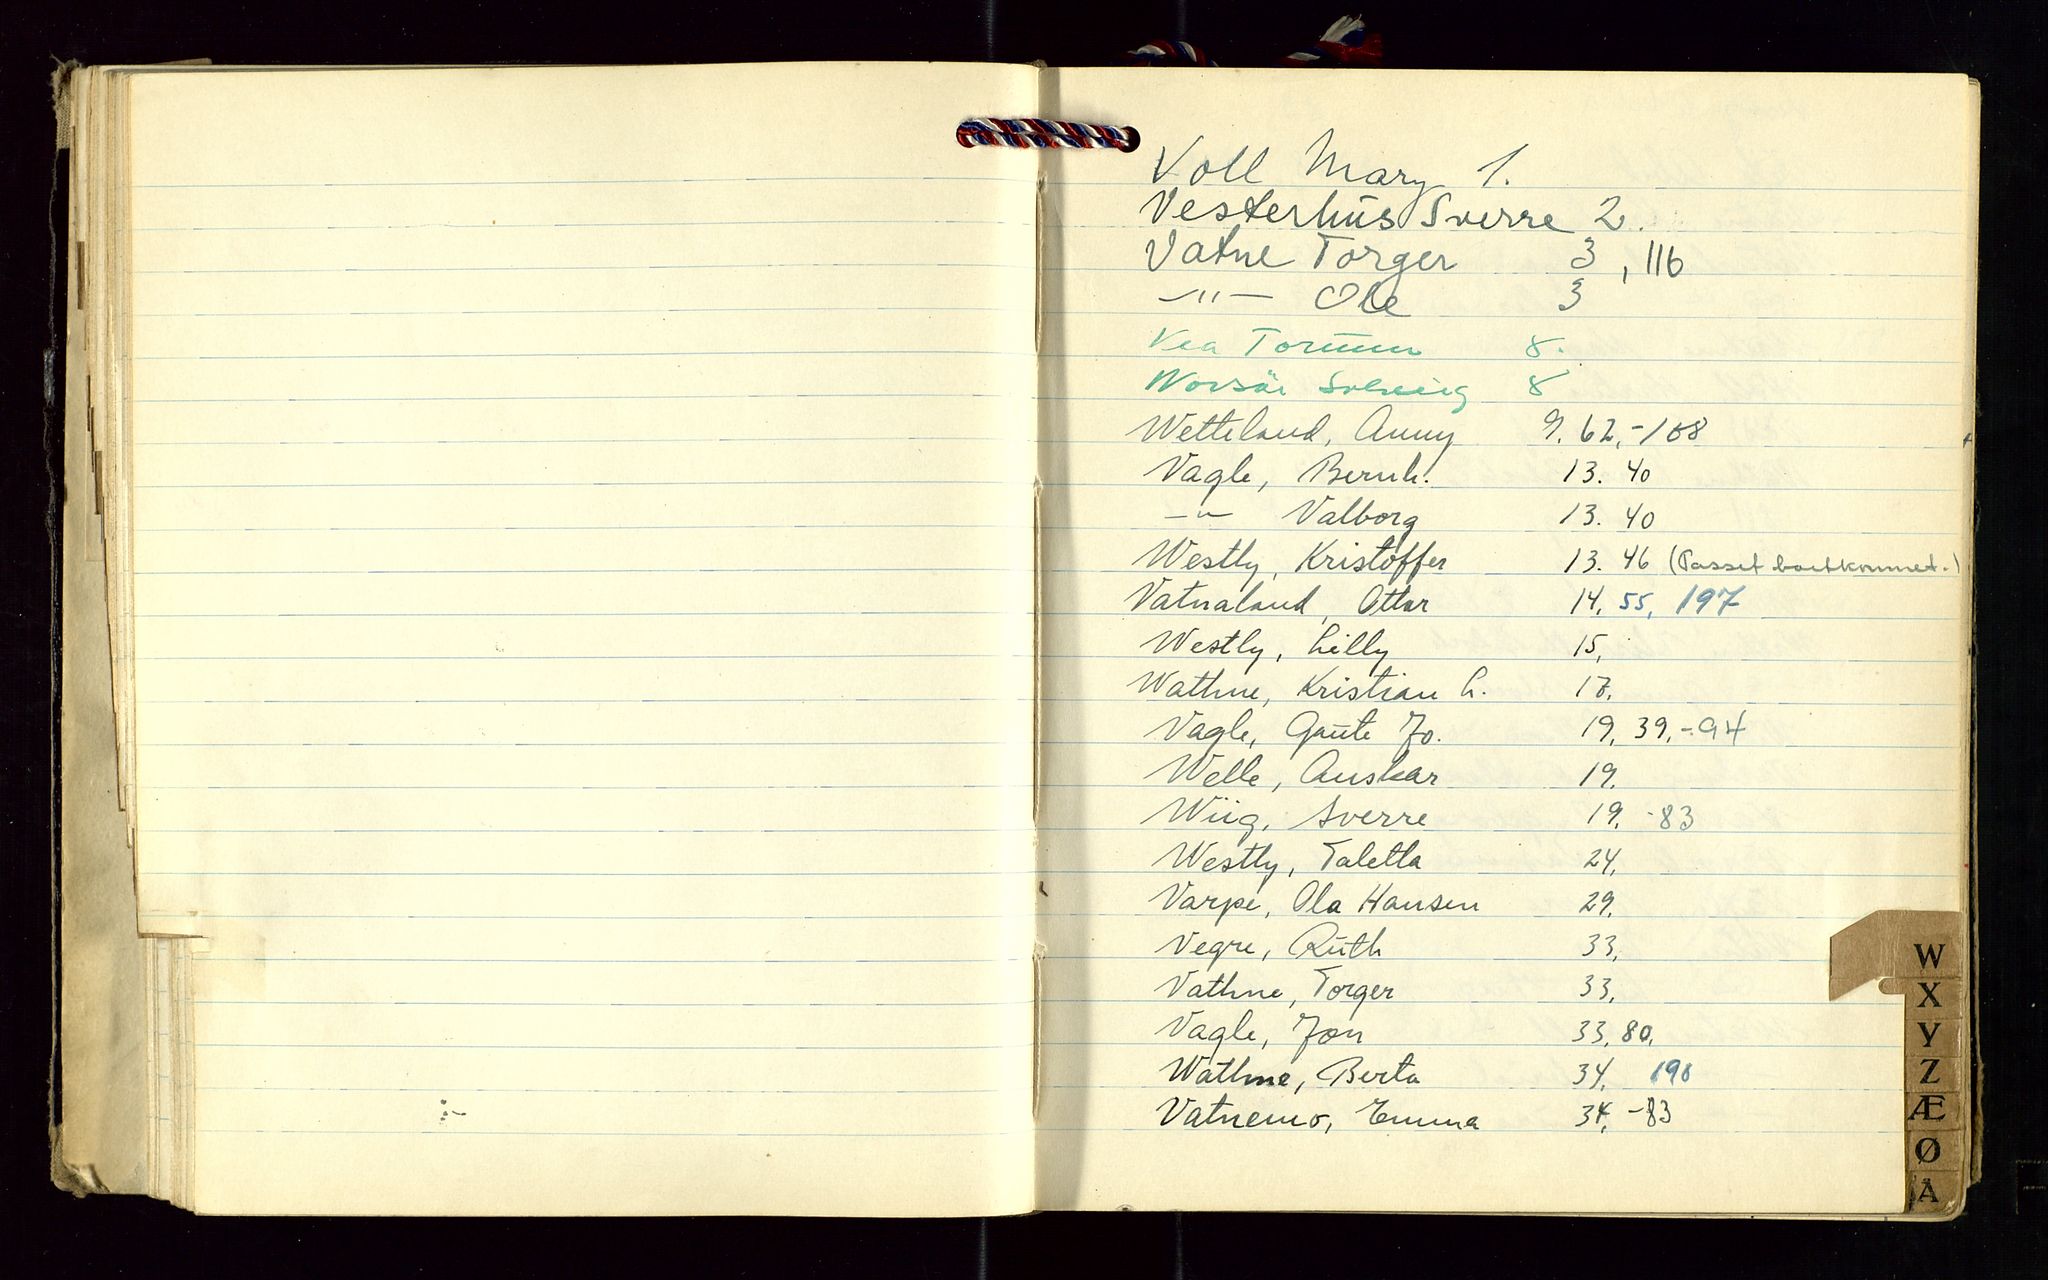 Voll Mary 1.
Vesterhus Sverre 2.
Vatne Torger 3, 116
—"— Ole 3
Vea Torunn 8.
Solveig 8
Wetteland, Anny 9, 62, -108
Vagle, Bernh. 13. 40
—"— Valborg 13. 40
Westly, Kristoffer 13. 46 (Passet bortkommet.)
Vatnaland, Ottar 14, 55, 197
Westly, Lilly 15,
Wathne, Kristian L. 17,
Vagle, Gaute Jo. 19, 39, -94
Welle, Anskar 19,
Wiig, Sverre 19, -83
Westly, Taletta 24,
Varpe, Ola Hansen 29,
Vegre, Ruth 33,
Vathne, Torger 33,
Vagle, Jon 33, 80,
Wathne, Berta 34, 190
Vatnemo, Emma 34, -83
W
X
Y
Z
Æ
Ø
Å